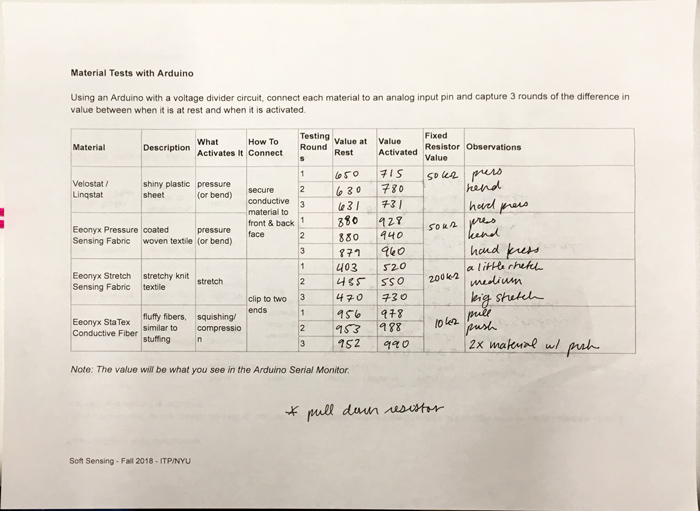 Material Tests with Arduino
Using an Arduino with a voltage divider circuit, connect each material to an analog input pin and capture 3 rounds of the difference in
value between when it is at rest and when it is activated.
Material Description What Activates It How To Connect Testing Rounds Value at Rest Value Activated Fixed Resistor Value Observations
Velostat / Linqstat shiny plastic sheet pressure (or bend) secure conductive material to front & back face
1 650 715 50kΩ press
2 630 780 bend
3 631 731 hard press
Eeonyx Pressure Sensing Fabric coated woven textile pressure (or bend)
1 880 928 50kΩ press
2 880 940 bend
3 879 960 hard press
Eeonyx Stretch Sensing Fabric stretchy knit textile stretch clip to two ends
1 403 520 200kΩ a little stretch
2 485 550 medium
3 470 730 big stretch
Eeonyx StaTex Conductive Fiber fluffy fibers, similar to stuffing squishing/ compression
1 956 978 10kΩ pull
2 953 988 push
3 952 990 2x material w/ push
Note: The value will be what you see in the Arduino Serial Monitor.
* pull down resistor
Soft Sensing - Fall 2018 - ITP/NYU